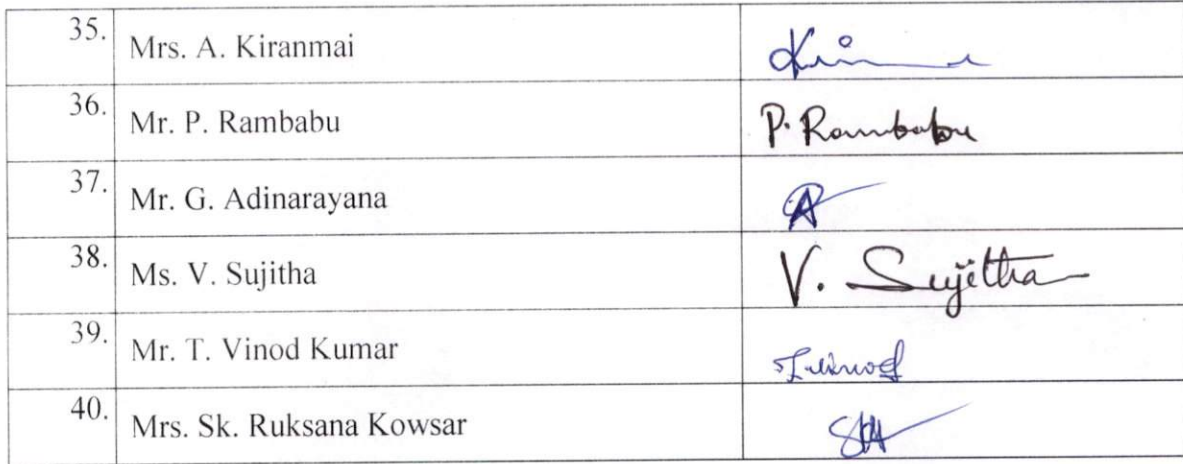 35. Mrs. A. Kiranmai
36. Mr. P. Rambabu P. Rambabu
37. Mr. G. Adinarayana
38. Ms. V. Sujitha V. Sujitha
39. Mr. T. Vinod Kumar T. Vinod
40. Mrs. Sk. Ruksana Kowsar